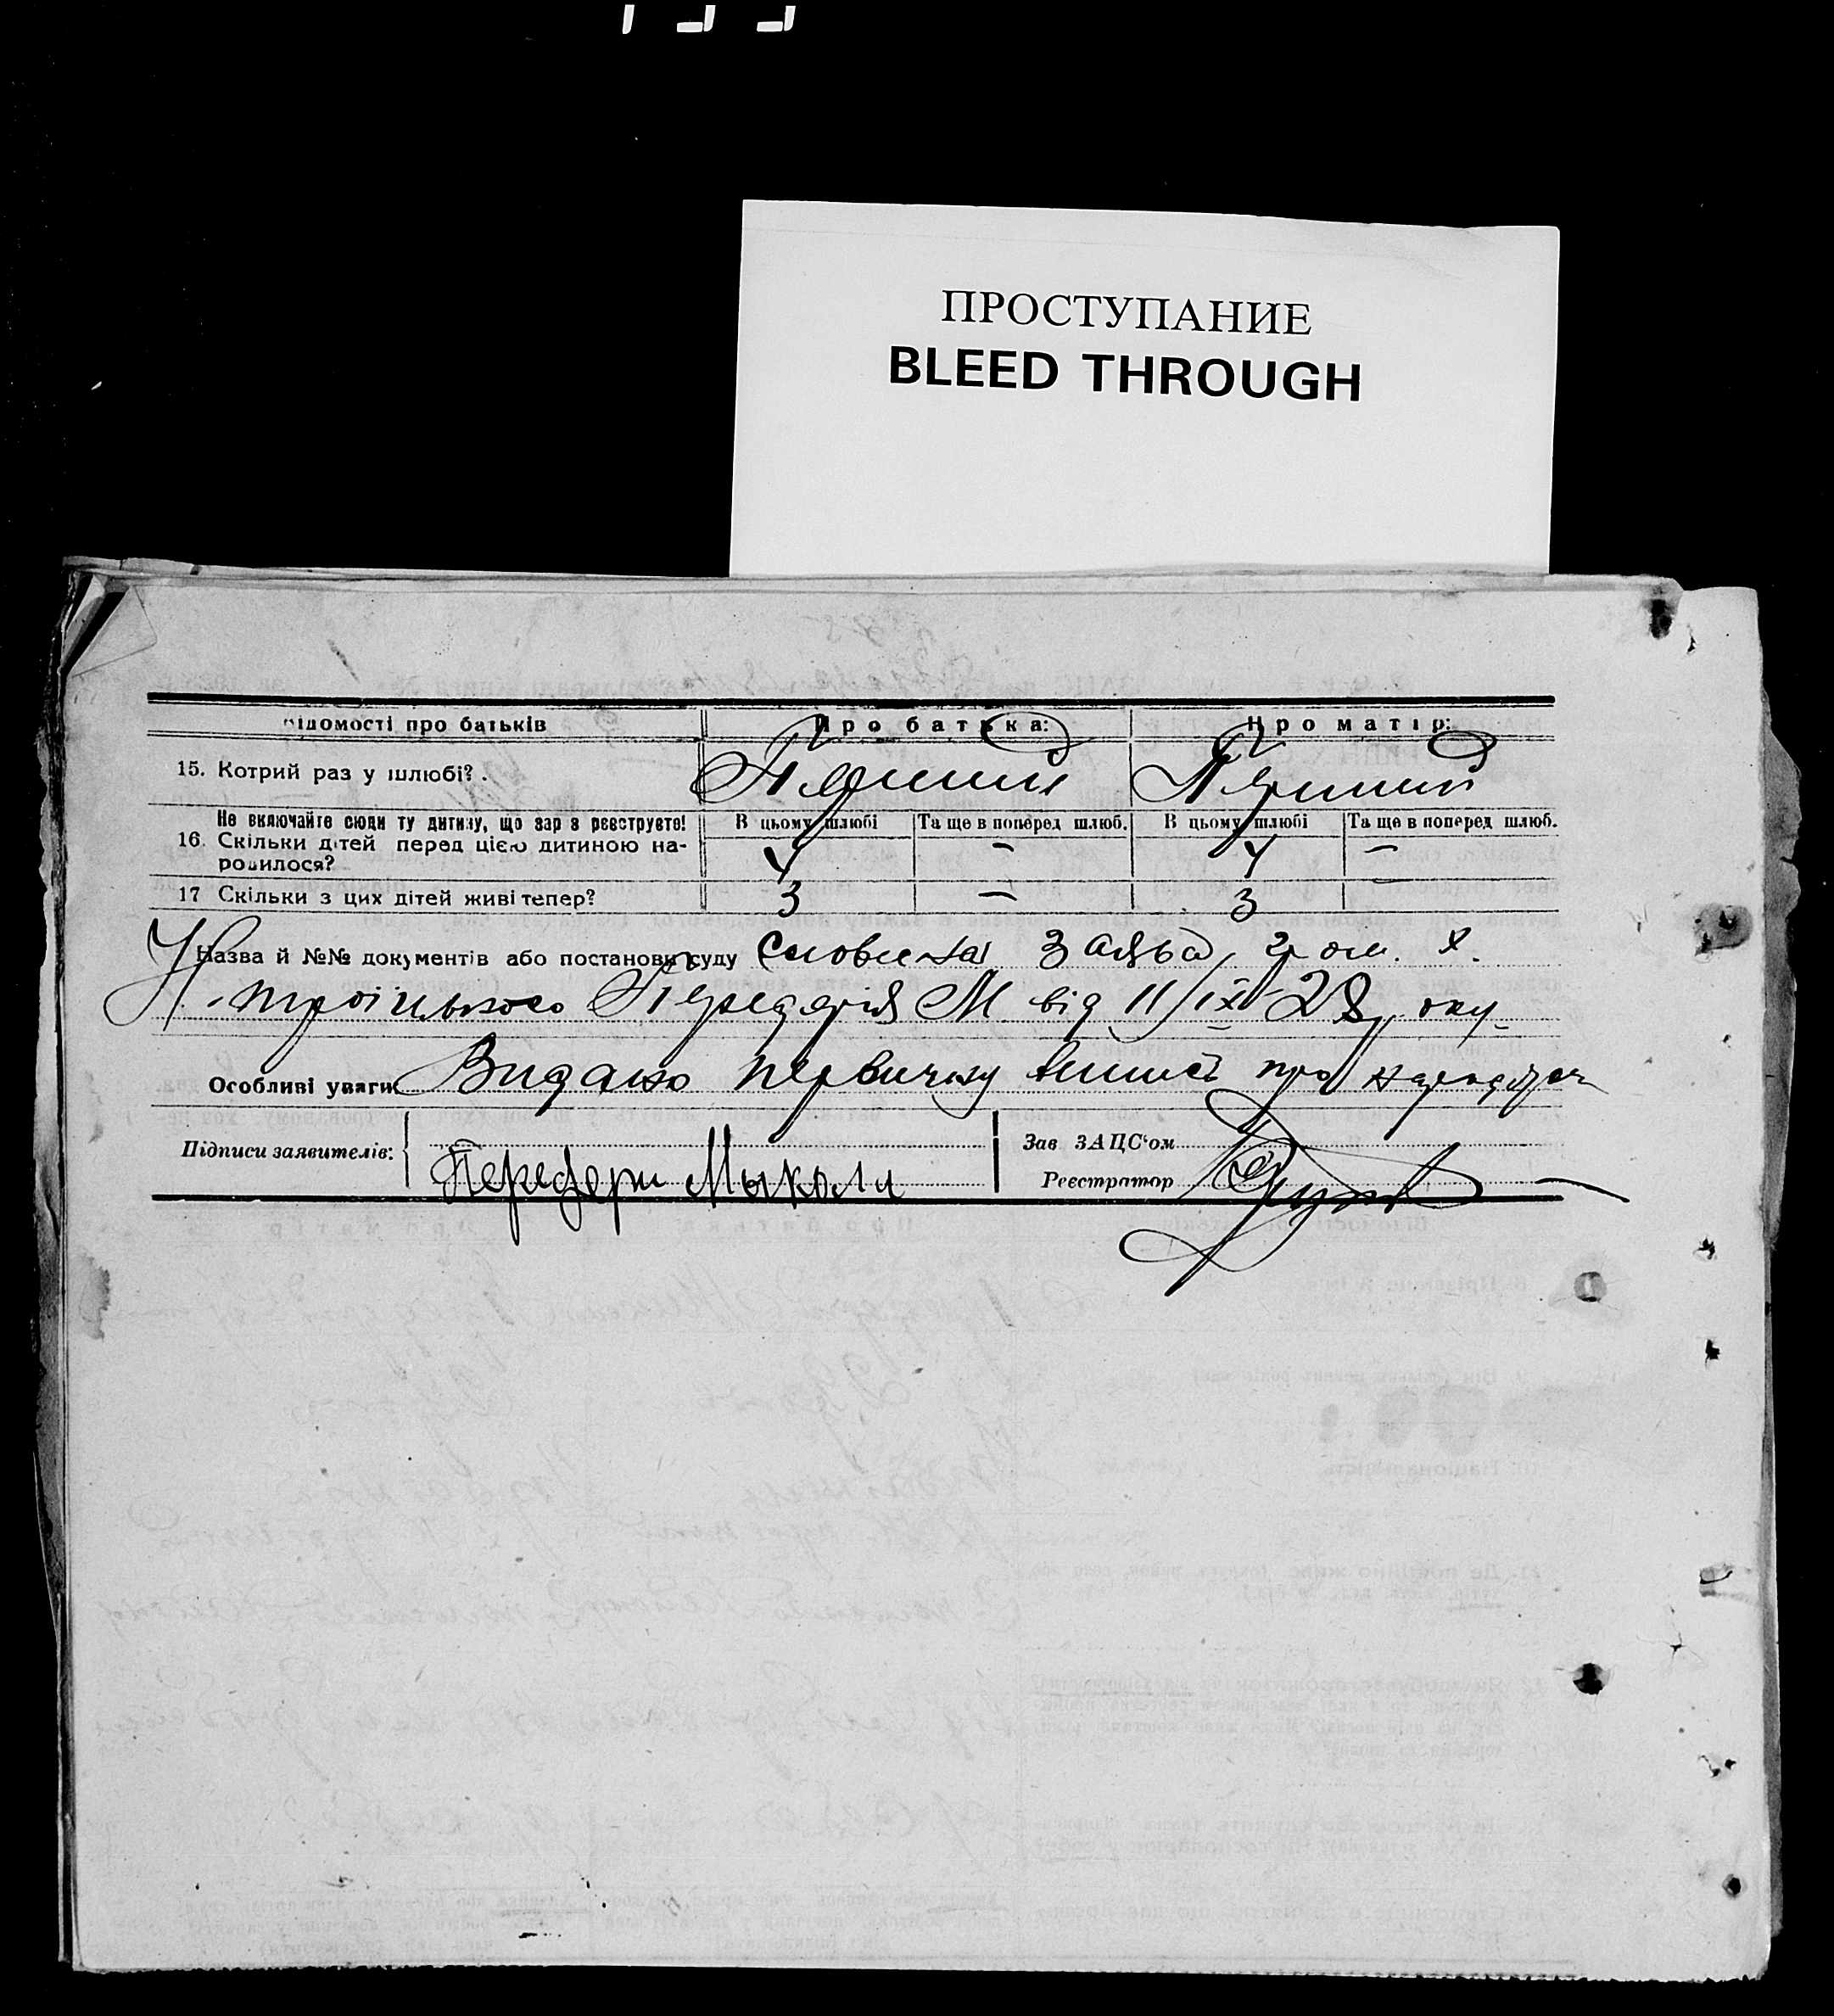 ПРОСТУПАНИЕ
BLEED THROUGH
ідомості про батьків Про батька: Про матір:
15. Котрий раз у шлюбі? . Перший Перший
Не включайте сюди ту дитину, що зараз реєструєте! В цьому шлюбі Та ще в поперед шлюб. В цьому шлюбі Та ще в поперед шлюб.
16. Скільки дітей перед цією дитиною на-
родилося? 4 – 4 –
17 Скільки з цих дітей живі тепер? 3 – 3 –
Назва й №№ документів або постанови суду Словесна Заява, гром. х.
Н. Троїцького Передерія М від 11/IX 28 року
Особливі уваги Видано первичну випись про
Підписи заявителів: Передери Мыкола
Зав ЗАЦС'ом
Реєстратор